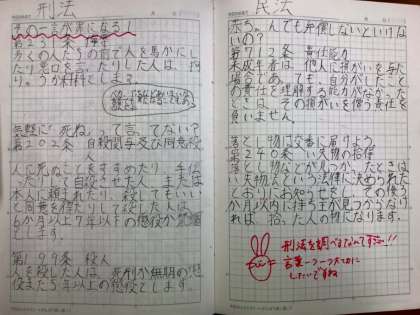 刑法
その一言が罪になる!
第231条 侮辱
多くの人たちの前で人を馬かにし
たり悪口を言ったりした人は、
科料とします。
気軽に「死ね」って言ってない?
第202条 自殺関与及び同意殺
人
人に死ぬことをすすめたり、手伝
ったりして自殺させた人、または
本人に頼まれたり、殺してもいい
と同意を得たりして殺した人は、
6か月以上7年以下の懲役か禁錮
とします。
第199条 殺人
人を殺した人は、死刑か無期の懲
役また5年以上の懲役とします。
民法
いの?
第712条 責任能力
未成年者は、他人に損がいを与えた
場合であっても、自分がしたこと
の責任を理解する能力がなかった
ときは、その損がいを償う責任を
負いません。
落とし物は交番に届けよう
第240条 い失物の拾得
落とし物などが見つかったときは
い失物法という法律に決められた
とおりにお知らせをし、その後3
か月以内に持ち主が見つからなけ
れば、拾った人の物になります。
刑法を調べるなんてすごい!!
言葉一つ一つ大切に
したいですね